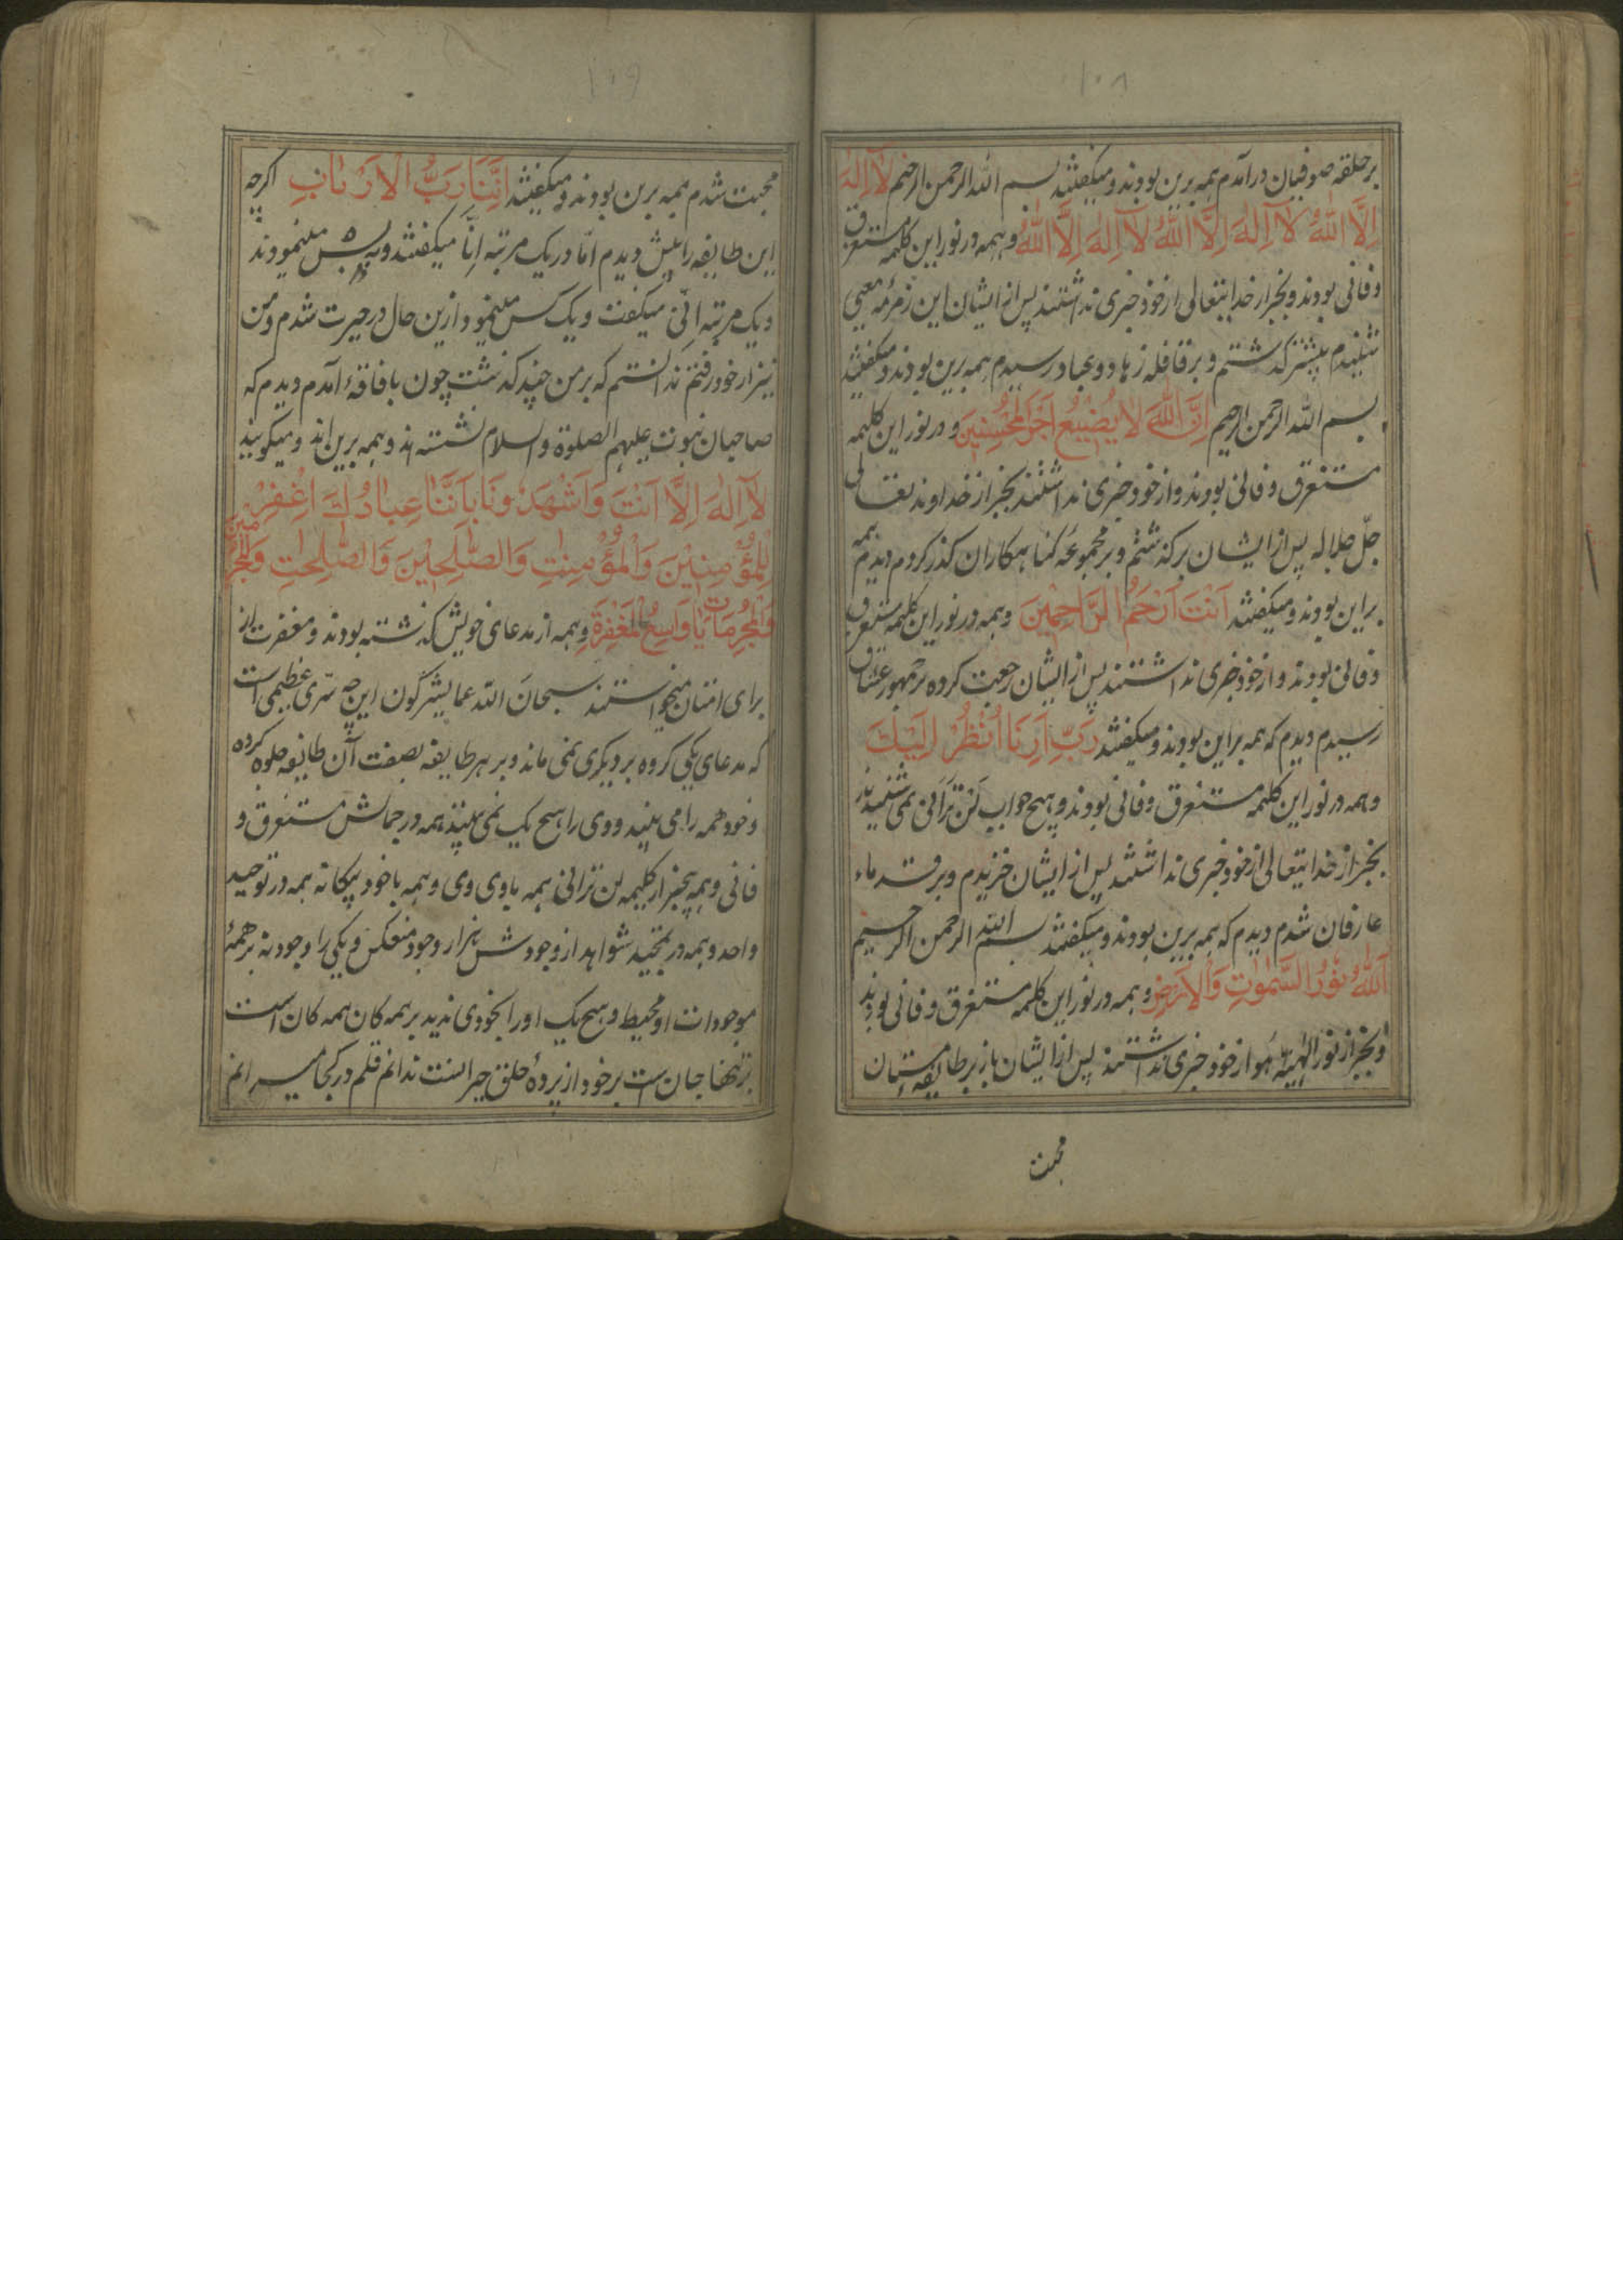 ۱۰۸
بر حلقه صوفیان درآمدم همه برین بودند و میگفتند بسم الله الرحمن الرحیم لَا اِلٰهَ
اِلَّا اللهُ لَا اِلٰهَ اِلَّا اللهُ لَا اِلٰهَ اِلَّا اللهُ وهمه در نور این کلمه مستغرق
و فانی بودند و بجز از خدایتعالی از خود خبری نداشتند پس از ایشان این زمزمه معیی
شنیدم پیشتر گذشتم و بر قافله زهاد و عباد رسیدم همه برین بودند و میگفتند
بسم الله الرحمن الرحیم اِنَّ اللهَ لَا یُضِیْعُ اَجْرَ الْمُحْسِنِیْنَ و در نور این کلیمه
مستغرق و فانی بودند و از خود خبری نداشتند بجز از خداوند تعالی
جلّ جلاله پس از ایشان برگذشتم و بر مجموعه گناهکاران گذر کردم دیدم همه
براین بودند و میگفتند اَنْتَ اَرْحَمُ الرَّاحِمِیْنَ وهمه در نور این کلیمه مستغرق
و فانی بودند و از خود خبری نداشتند پس از ایشان رجعت کرده بر جمهور عشاق
رسیدم دیدم که همه براین بودند و میگفتند رَبِّ اَرِنَا اُنْظُرْ اِلَیْكَ
وهمه در نور این کلیمه مستغرق و فانی بودند و هیچ جواب لَنْ تَرَانِی نمی شنیدند
بجز از خدایتعالی از خود خبری نداشتند پس از ایشان خزیدم و بر قدماء
عارفان شدم دیدم که همه برین بودند و میگفتند بسم الله الرحمن الرحیم
اَللهُ نُوْرُ السَّمٰوٰتِ وَالْاَرْضِ وهمه در نور این کلمه مستغرق و فانی بودند
و بجز از نور الهیته هو از خود خبری نداشتند پس از ایشان باز بر طایفه مستان
محبت
۱۰۹
محبت شدم همه برین بودند و میگفتند اِنَّنَا رَبُّ الْاَرْبَابِ اگرچه
این طایفه را بیش دیدم امّا در یک مرتبه اِنَّا میگفتند و به بس مینمودند
و یک مرتبه اِنّی میگفت و یک کس مینمود ازین حال در حیرت شدم و من
نیز از خود رفتم ندانستم که بر من چند گذشت چون بافاقهٔ آمدم دیدم که
صاحبان نبوت علیهم الصلوة والسلام نشسته اند و همه برین اند و میگویند
لَا اِلٰهَ اِلَّا اَنْتَ وَاَشْهَدْ وْنَا بِاَنَّنَا عِبَادُكَ اغْفِرْ
لِلْمُؤْمِنِیْنَ وَالْمُؤْمِنٰتِ وَالصّٰلِحِیْنَ وَالصّٰلِحٰتِ وَلْمُجْرِمِیْنَ
وَالْمُجْرِمَاتِ یَا وَاسِعُ الْمَغْفِرَةِ وهمه از مدعای خویش گذشته بودند و مغفرت از
برای امتان میخواستند سبحان الله عمایشرکون این چه سرّی عظیمی است
که مدعای یکی گروه بر دیگری نمی ماند و بر هر طایفه بصفت آن طایفه جلوه کرده
و خود همه را می بیند و وی را هیچ یک نمی بیند همه در جمالش مستغرق و
فانی و همه بیخبر از کلیمه لن ترانی همه باوی وی و همه باخود بیگانه همه در توحید
واحد و همه در تمجید شواهد از وجودش هزار وجود منعکس و یکی را وجود نه بر همهٔ
موجودات او محیط و هیچ یک او را بخودی ندید بر همه کان همه کان است
تنها جان ست بر خود از پردهٔ خلق حیرانست ندانم قلم در کجا میرانم